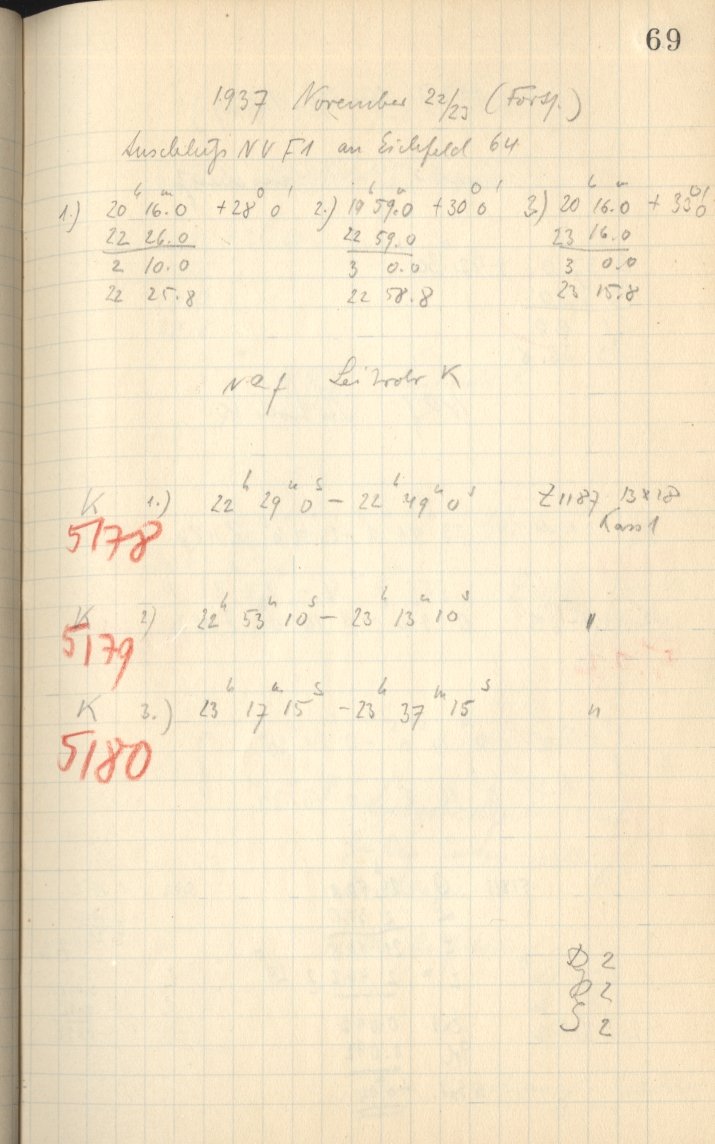 69
1937 November 22/23 (Forts.)
Anschluß NVF1 an Eichfeld 64
1.) 20ʰ 16ᵐ.0 +28° 0' 2.) 19ʰ 59ᵐ.0 +30° 0' 3.) 20ʰ 16ᵐ.0 +33° 0'
22 26.0 22 59.0 23 16.0
2 10.0 3 0.0 3 0.0
22 25.8 22 58.8 23 15.8
Leitrohr K
K 1.) 22ʰ 29ᵐ 0ˢ – 22ʰ 49ᵐ 0ˢ Z1187 13x18
5178 Kass 1
K 2) 22ʰ 53ᵐ 10ˢ – 23ʰ 13ᵐ 10ˢ "
5179
K 3.) 23ʰ 17ᵐ 15ˢ – 23ʰ 37ᵐ 15ˢ "
5180
D 2
2
S 2